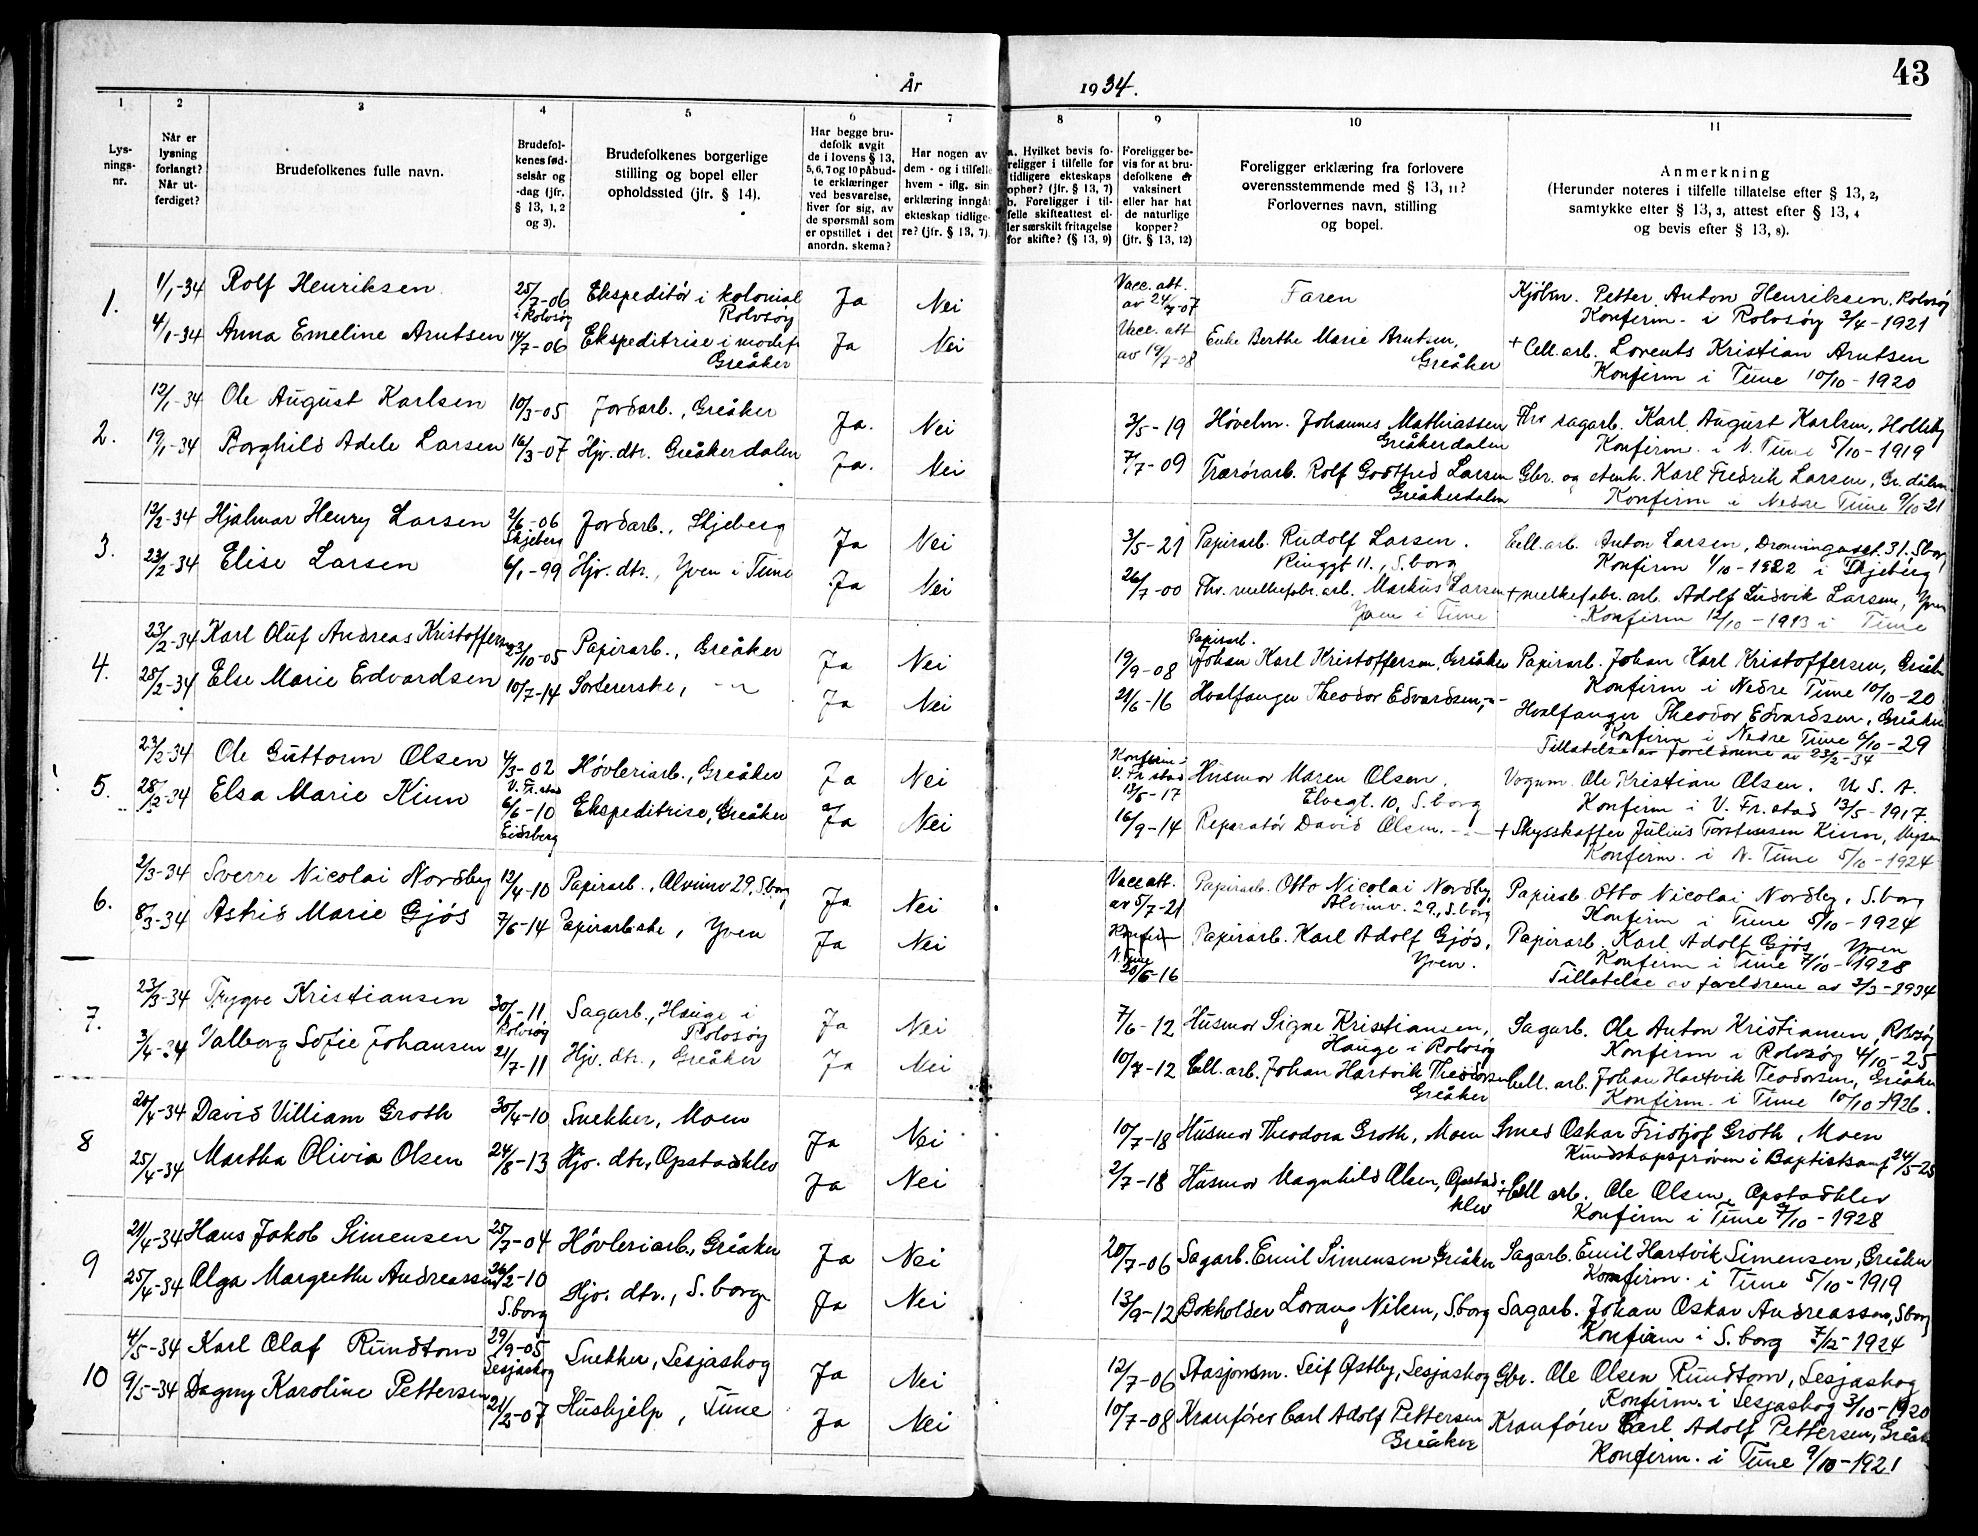 43
År 1934.
1 2 3 4 5 6 7 8 9 10 11
Lysnings-nr.
Når er lysning forlangt? Når utferdiget?
Brudefolkenes fulle navn.
Brudefolkenes fødselsår og -dag (jfr. § 13, 1, 2 og 3).
Brudefolkenes borgerlige stilling og bopel eller opholdssted (jfr. § 14).
Har begge brudefolk avgit de i lovens § 13, 5, 6, 7 og 10 påbudte erklæringer ved besvarelse, hver for sig, av de spørsmål som er opstillet i det anordn. skema?
Har nogen av dem - og i tilfelle hvem - iflg. sin erklæring inngått ekteskap tidligere? (jfr. § 13, 7).
a. Hvilket bevis foreligger i tilfelle for tidligere ekteskaps ophør? (jfr. § 13, 7) b. Foreligger i tilfelle skifteattest eller særskilt fritagelse for skifte? (§ 13, 9)
Foreligger bevis for at brudefolkene er vaksinert eller har hat de naturlige kopper? (jfr. § 13, 12)
Foreligger erklæring fra forlovere overensstemmende med § 13, 11? Forlovernes navn, stilling og bopel.
Anmerkning (Herunder noteres i tilfelle tillatelse efter § 13, 2, samtykke efter § 13, 3, attest efter § 13, 4 og bevis efter § 13, 8).
1. 1/1-34 Rolf Henriksen 25/7-06 i Rolvsøy Ekspeditør i kolonial Rolvsøy Ja Nei Vacc. att. av 24/7-07 Faren Kjøbm. Petter Anton Henriksen, Rolvsøy
Konfirm. i Rolvsøy 3/4-1921
4/1-34 Anna Emeline Arntsen 14/7-06 Ekspeditrise i modef. Greåker Ja Nei Vacc. att av 19/7-08 Enke Berthe Marie Arntsen, Greåker + Cell. arb. Lorents Kristian Arntsen
Konfirm i Tune 10/10-1920
2. 12/1-34 Ole August Karlsen 10/3-05 Jordarb., Greåker Ja. Nei 3/5-19 Høvelm. Johannes Mathiassen Greåkerdalen Fhv sagarb. Karl August Karlsen, Holleby
Konfirm. i N. Tune 5/10-1919
19/1-34 Borghild Adele Larsen 16/3-07 Hjv. dtr. Greåkerdalen Ja. Nei 7/7-09 Trærørarb. Rolf Godtfred Larsen Greåkerdalen Gbr. og Karl Fredrik Larsen, Gr. dalen
Konfirm i Nedre Tune 9/10-21
3. 12/2-34 Hjalmar Henry Larsen 2/6-06 Skjeberg Jordarb., Skjeberg Ja Nei 3/5-21 Papirarb. Rudolf Larsen. Ringgt 11., S.borg Cell. arb. Anton Larsen, Dronningensgt. 31. S.borg
Konfirm 1/10-1922 i Skjeberg
23/2-34 Elise Larsen 6/1-99 Hjv. dtr., Yven i Tune Ja Nei 26/7-00 Fhv. melkefabr. arb. Markus Larsen Yven i Tune + melkefabr. arb. Adolf Ludvik Larsen, Yven
Konfirm 12/10-1913 i Tune
4. 23/2-34 Karl Oluf Andreas Kristoffersen 23/10-05 Papirarb., Greåker Ja Nei 19/9-08 Papirarb. Johan Karl Kristoffersen, Greåker Papirarb. Johan Karl Kristoffersen, Greåk.
Konfirm i Nedre Tune 10/10-20
28/2-34 Else Marie Edvardsen 10/7-14 Sortererske, -"- Ja Nei 21/6-16 Hvalfanger Theodor Edvardsen, -"- Hvalfanger Theodor Edvardsen, Greåker
Konfirm i Nedre Tune 6/10-29
Tillatelse av foreldrene av 23/2-34
5. 23/2-34 Ole Guttorm Olsen 4/3-02 V. Fr.stad Høvleriarb., Greåker Ja Nei Konfirm. V. Fr.stad 13/5-17 Husmor Maren Olsen. Elvegt. 10, S.borg Vognm. Ole Kristian Olsen. U. S. A.
Konfirm i V. Fr.stad 13/5-1917.
28/2-34 Elsa Marie Kinn 6/6-10 Eidsberg Ekspeditrise, Greåker Ja Nei 16/9-14 Reparatør David Olsen. -"- + Skysskaffer Julius Torstensen Kinn, Mysen
Konfirm. i N. Tune 5/10-1924
6. 2/3-34 Sverre Nicolai Nordby 12/4-10 Papirarb., Alvimv 29, S.borg Ja Nei Vacc att. av 5/7-21 Papirarb. Otto Nicolai Nordby, Alvimv. 29., S.borg Papirarb. Otto Nicolai Nordby, S.borg
Konfirm i Tune 5/10-1924
8/3-34 Astrid Marie Gjøs 7/6-14 Papirarbske, Yven Ja Nei Konfirm N. Tune 20/6-16 Papirarb. Karl Adolf Gjøs, Yven. Papirarb. Karl Adolf Gjøs, Yven
Konfirm i Tune 7/10-1928
Tillatelse av foreldrene av 2/3-1934
7. 23/3-34 Trygve Kristiansen 30/1-11. Rolvsøy Sagarb., Hauge i Rolvsøy Ja Nei 7/6-12 Husmor Signe Kristiansen, Hauge i Rolvsøy Sagarb. Ole Anton Kristiansen, Rolvsøy
Konfirm i Rolvsøy 4/10-25
3/4-34 Valborg Sofie Johansen 21/7-11 Hjv. dtr., Greåker Ja Nei 10/7-12 Cell. arb. Johan Hartvik Theodorsen Greåker Cell. arb. Johan Hartvik Teodorsen, Greåker
Konfirm. i Tune 10/10-1926.
8 20/4-34 David Villiam Groth 30/4-10 Snekker, Moen Ja Nei 10/7-18 Husmor Theodora Groth, Moen Smed Oskar Fridtjof Groth, Moen
Kundskapsprøven i Baptistsamf 24/5-25
25/4-34 Martha Olivia Olsen 24/8-13 Hjv. dtr, Opstadklev Ja Nei 2/7-18 Husmor Magnhild Olsen, Opstadklev + Cell arb. Ole Olsen, Opstadklev
Konfirm i Tune 7/10-1928
9 21/4-34 Hans Jakob Simensen 25/7-04 Høvleriarb., Greåker Ja Nei 20/7-06 Sagarb. Emil Simensen Greåker Sagarb. Emil Hartvik Simensen, Greåker
Konfirm. i Tune 5/10-1919
25/4-34 Olga Margrethe Andreassen 26/2-10 S.borg Hjv. dtr., S.borg Ja Nei 13/9-12 Bokholder Lorang Nilsen, S.borg Sagarb. Johan Oskar Andreassen, S.borg
Konfirm i S.borg 7/12-1924
10 4/5-34 Karl Olaf Rundtom 29/9-05 Lesjaskog Snekker, Lesjaskog Ja Nei 12/7-06 Stasjonsm. Leif Østby, Lesjaskog Gbr. Ole Olsen Rundtom, Lesjaskog
Konfirm. i Lesjaskog 3/10-1920
9/5-34 Dagny Karoline Pettersen 21/2-07 Hushjelp, Tune Ja Nei 10/7-08 Kranfører Carl Adolf Pettersen Greåker Kranfører Carl Adolf Pettersen, Greåk
Konfirm. i Tune 9/10-1921